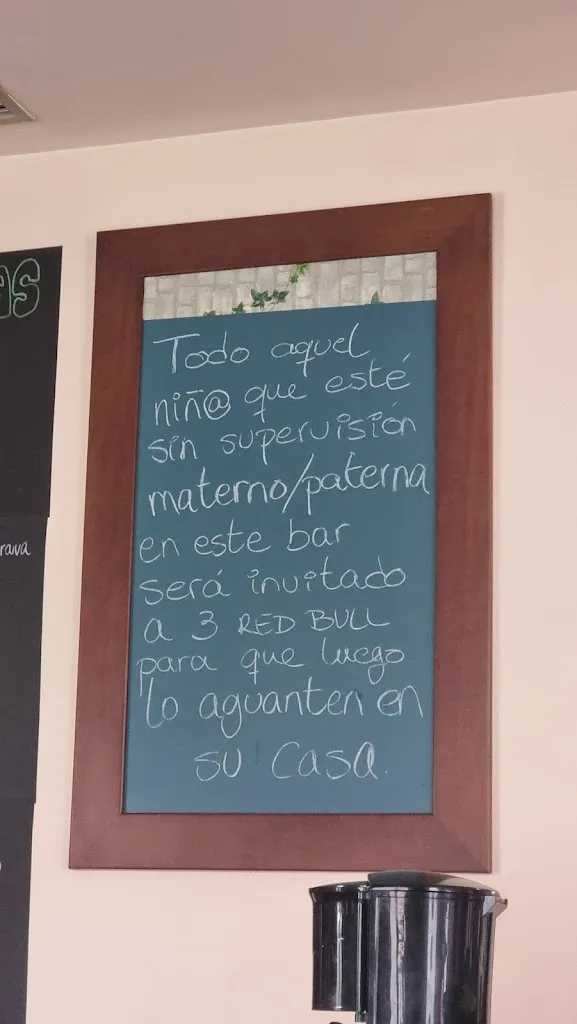 as
rava
Todo aquel
niñ@ que esté
sin supervisión
materno/paterna
en este bar
será invitado
a 3 RED BULL
para que luego
lo aguanten en
su casa.